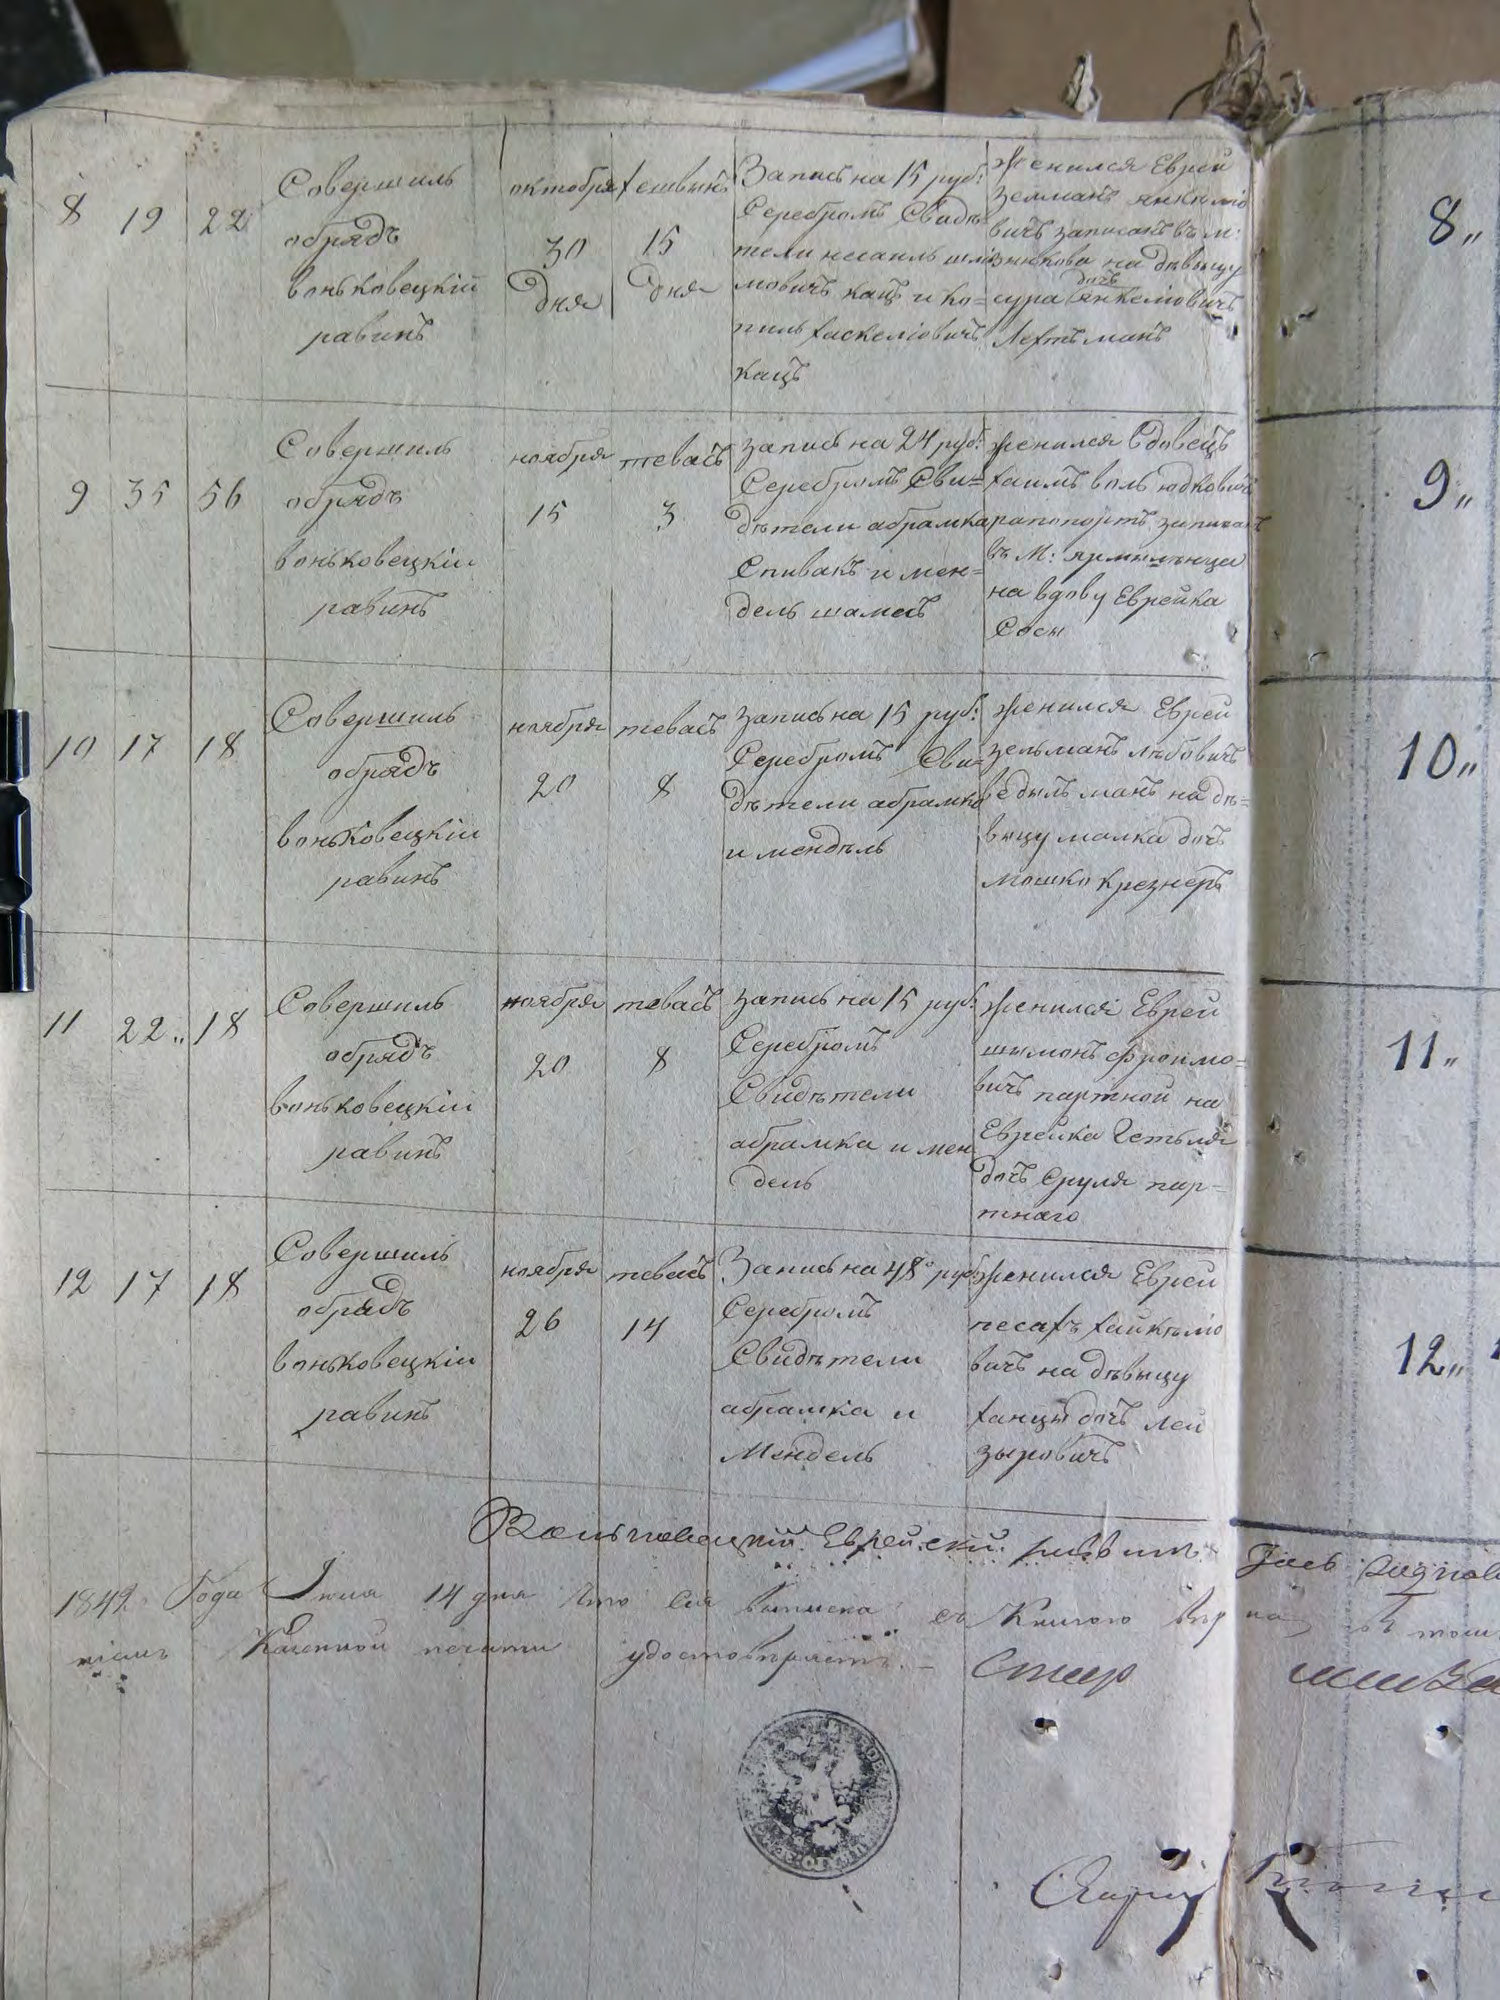 8 19 22
Совершилъ
обрядъ
воньковецкій
равинъ
октобря
30
дня
хешвынъ
15
дня
Запись на 15 руб:
Серебромъ Свидѣ
тели несаиль шлі
мовичъ кацъ и ко=
пиль хаскеліовичъ
кацъ
женился Еврей
зелманъ янкеліо
вичъ записанъ въ м:
зинкова на дѣвыцу
сура дочъ янкеліовичъ
Лехтъманъ
8„
9 35 56
Совершилъ
обрядъ
воньковецкіи
равинъ
ноября
15
тевасъ
3
запись на 24 руб:
Серебромъ Сви=
дѣтели абрамка
Спивакъ и мен=
дель шамесъ
женился вдовецъ
хаимъ воль юдковичъ
рапопортъ записанъ
въ М: ярмылынца
на вдову Еврейка
Сосы
9„
10 17 18
Совершилъ
обрядъ
воньковецкіи
равинъ
ноября
20
тевасъ
8
запись на 15 руб:
Серебромъ Сви=
дѣтели абрамка
и мендѣль
женился Еврей
зельманъ лѣбовичъ
ведылъманъ на дѣ=
выцу малка дочъ
мошко крезнеръ
10„
11 22„ 18
Совершилъ
обрядъ
воньковецкіи
равинъ
ноября
20
тевасъ
8
запись на 15 руб:
Серебромъ
Свидѣтели
абрамка и мен
дель
женился Еврей
шымонъ Фроимо=
вичъ партной на
Еврейка Гетыля
дочъ Сруля пар=
тнаго
11„
12 17 18
Совершилъ
обрядъ
воньковецкіи
равинъ
ноября
26
тевасъ
14
Запись на 48 руб:
Серебромъ
Свидѣтели
абрамка и
Мендель
женился Еврей
песахъ хайкѣліо
вичъ на дѣвыцу
ханцы дочъ лей
зыровичъ
12„
Воньковецкій Еврейскій равинъ
1842 Года Іюля 14 дня что сія выписка съ Книгою вѣрна въ томъ
Казенной печати удостовѣряетъ. –